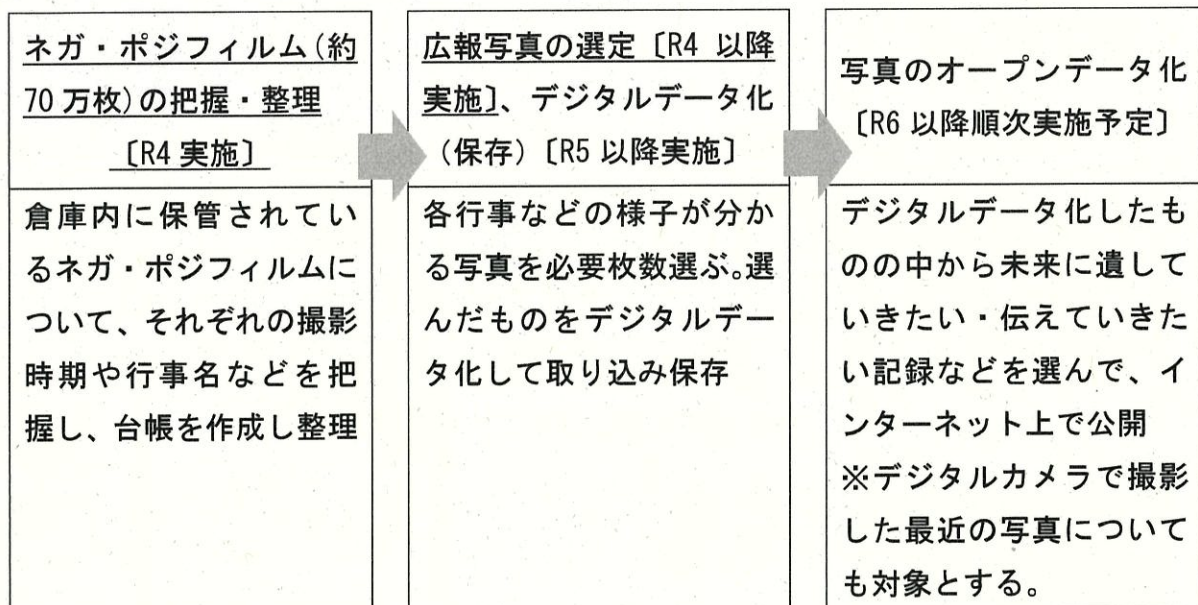 ネガ・ポジフィルム(約
70万枚)の把握・整理
〔R4 実施〕
倉庫内に保管されてい
るネガ・ポジフィルムに
ついて、それぞれの撮影
時期や行事名などを把
握し、台帳を作成し整理
広報写真の選定〔R4 以降
実施〕、デジタルデータ化
(保存)〔R5 以降実施〕
各行事などの様子が分か
る写真を必要枚数選ぶ。選
んだものをデジタルデー
タ化して取り込み保存
写真のオープンデータ化
〔R6 以降順次実施予定〕
デジタルデータ化したも
のの中から未来に遺して
いきたい・伝えていきた
い記録などを選んで、イ
ンターネット上で公開
※デジタルカメラで撮影
した最近の写真について
も対象とする。